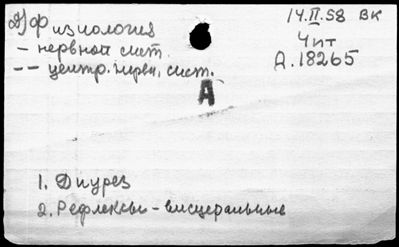 Д/Физиология
14.II.58 ВК
- нервной сист.
Чит
-- центр. нервн. сист.
Д.18265
А
1. Диурез
2. Рефлексы - висцеральные